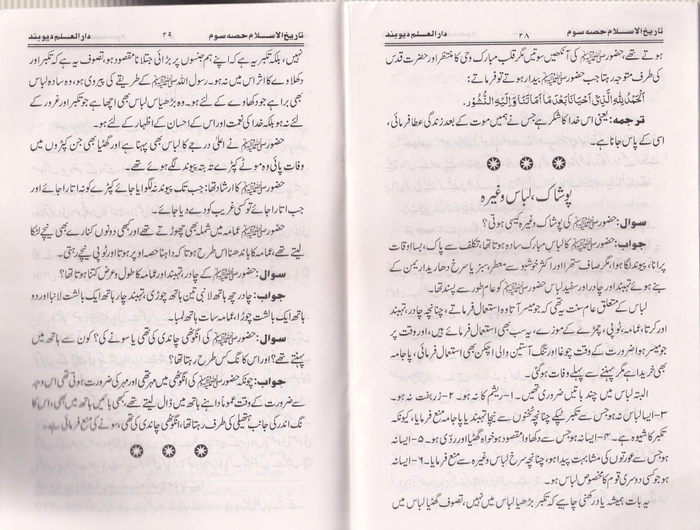 تاریخ الاسلام حصہ سوم ۲۸ دارالعلم دیوبند
ہوتے تھے، حضور ﷺ کی آنکھیں سوتیں مگر قلب مبارک وحی کا منتظر اور حضرت قدس
کی طرف متوجہ رہتا جب حضور ﷺ بیدار ہوتے تو فرماتے:
اَلْحَمْدُ لِلّٰهِ الَّذِيْ اَحْيَانَا بَعْدَ مَا اَمَاتَنَا وَاِلَيْهِ النُّشُوْرُ.
ترجمہ: یعنی اس خدا کا شکر ہے جس نے ہمیں موت کے بعد زندگی عطا فرمائی،
اسی کے پاس جانا ہے۔
پوشاک، لباس وغیرہ
سوال: حضور ﷺ کی پوشاک وغیرہ کیسی ہوتی؟
جواب: حضور ﷺ کا لباس مبارک سادہ ہوتا تھا، تکلف سے پاک، بسا اوقات
پرانا، پیوند لگا ہوا، مگر صاف ستھرا اور اکثر خوشبو سے معطر، سبز یا سرخ دھاریدار یمن کے
بنے ہوئے تہبند اور چادر اور سفید لباس حضور ﷺ کو عام طور سے پسند تھا۔
لباس کے متعلق عام سنت یہ تھی کہ جو میسر آتا وہ استعمال فرماتے، چنانچہ چادر، تہبند
اور کرتا، عمامہ، ٹوپی، چمڑے کے موزے، یہ سب بھی استعمال فرمائے ہیں، اور وقت پر
جو میسر ہوا ضرورت کے وقت چوغا اور تنگ آستین والی اچکن بھی استعمال فرمائی، پاجامہ
بھی خریدا ہے مگر پہننے سے پہلے وفات ہو گئی۔
البتہ لباس میں چند باتیں ضروری تھیں۔ ۱- ریشم کا نہ ہو۔ ۲- زربفت نہ ہو۔
۳- ایسا لباس نہ ہو جس سے تکبر ٹپکے چنانچہ ٹخنوں سے نیچا تہبند یا پاجامہ منع فرمایا، کیونکہ
تکبر کا شیوہ ہے۔ ۴- ایسا نہ ہو جس سے دکھاوا مقصود ہو خواہ گھٹیا اور ردّی ہو۔ ۵- ایسا نہ
ہو جس سے عورتوں کی مشابہت پیدا ہو، چنانچہ سرخ لباس وغیرہ سے منع فرمایا۔ ۶- ایسا نہ
ہو جو کسی دوسری قوم کا مخصوص لباس ہو۔
یہ بات ہمیشہ یاد رکھنی چاہیے کہ تکبر بڑھیا لباس میں نہیں، تصوف گھٹیا لباس میں
تاریخ الاسلام حصہ سوم ۲۹ دارالعلم دیوبند
نہیں، بلکہ تکبر یہ ہے کہ اپنے ہم جنسوں پر بڑائی جتلانا مقصود ہو، تصوف یہ ہے کہ تکبر اور
دکھلاوے کا اثر اس میں نہ ہو۔ رسول اللہ ﷺ کے طریقے کی پیروی ہو، وہ سادہ لباس
بھی برا ہے جو دکھاوے کے لئے ہو۔ وہ بڑھیا لباس بھی اچھا ہے جو تکبر اور غرور کے
لئے نہ ہو بلکہ خدا کی نعمت اور اس کے احسان کے اظہار کے لئے ہو۔
حضور ﷺ نے اعلیٰ درجے کا لباس بھی پہنا ہے اور گھٹیا بھی جن کپڑوں میں
وفات پائی وہ موٹے کپڑے تہ بتہ پیوند لگے ہوئے تھے۔
حضور ﷺ کا ارشاد تھا: جب تک پیوند نہ لگوایا جائے کپڑے کو نہ اتارا جائے اور
جب اتارا جائے تو کسی غریب کو دے دیا جائے۔
حضور ﷺ عمامہ میں شملہ بھی چھوڑتے تھے اور کبھی دونوں کنارے بھی نیچے لٹکا
لیتے تھے، عمامہ کا باندھنا اس طرح ہوتا کہ داہنا حصہ اوپر ہوتا اور ٹوپی نیچے رہتی۔
سوال: حضور ﷺ کے چادر، تہبند اور عمامہ کا طول و عرض کتنا ہوتا تھا؟
جواب: چادر چھ ہاتھ لانبی تین ہاتھ چوڑی، تہبند چار ہاتھ ایک بالشت لانبا اور دو
ہاتھ ایک بالشت چوڑا، عمامہ سات ہاتھ لمبا۔
سوال: حضور ﷺ کی انگوٹھی چاندی کی تھی یا سونے کی؟ کون سے ہاتھ میں
پہنتے تھے؟ اور اس کا نگ کس طرح رہتا تھا؟
جواب: چونکہ حضور ﷺ کی انگوٹھی میں مہر تھی اور مہر کی ضرورت ہوتی تھی اس وجہ
سے ضرورت کے وقت عموماً داہنے ہاتھ میں ڈال لیتے تھے، کبھی بائیں ہاتھ میں بھی، اس کا
نگ اندر کی جانب ہتھیلی کی طرف رہتا تھا، انگوٹھی چاندی کی تھی، سونے کی منع فرمائی ہے۔